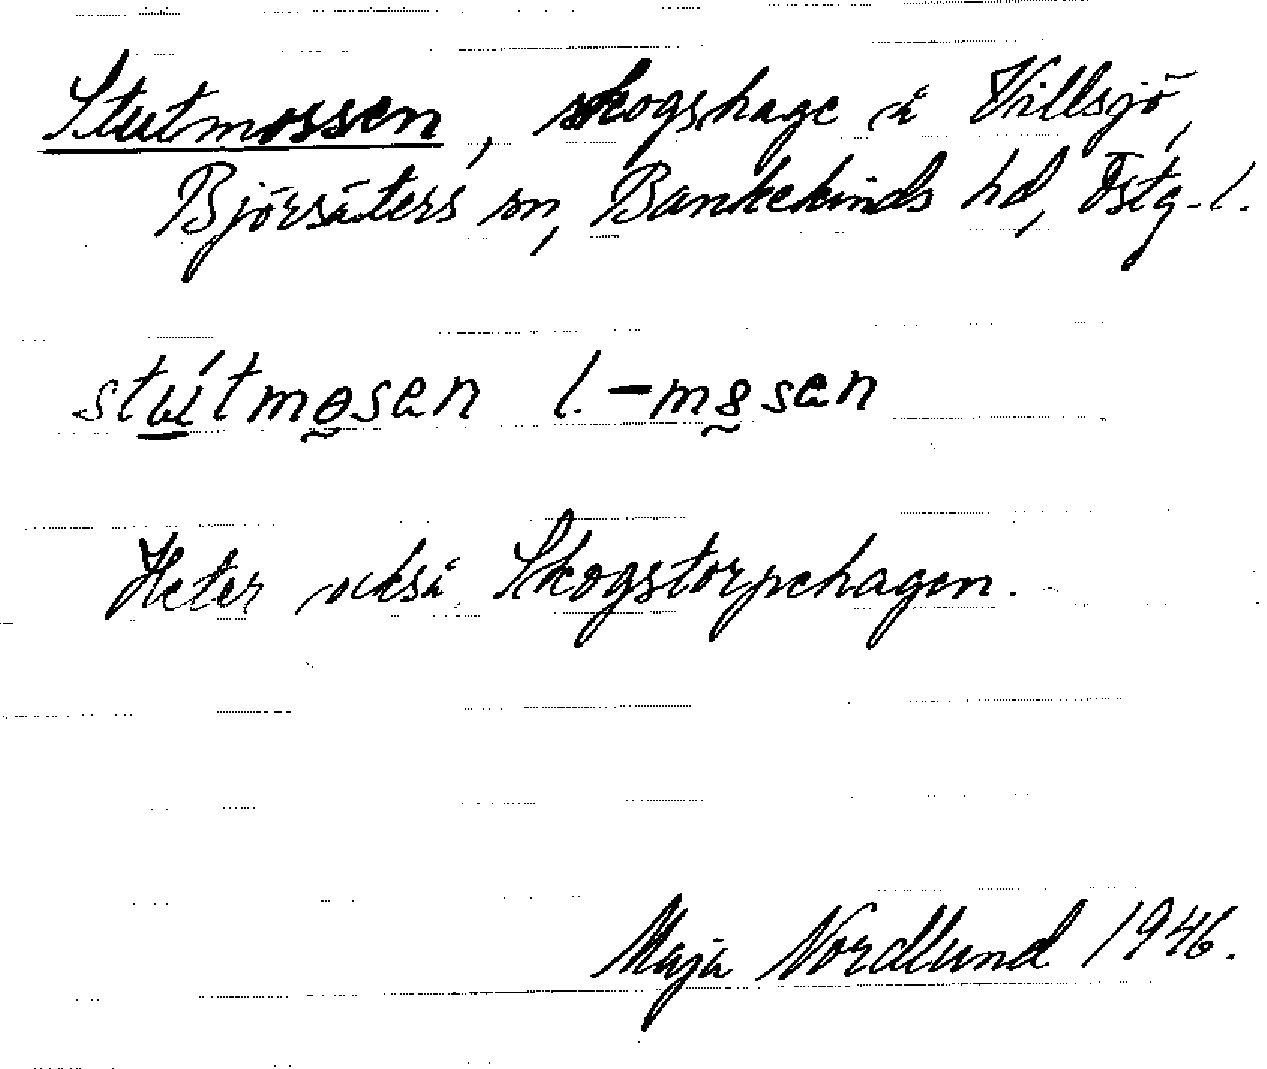 Stutmossen, skogshage å Villsjö,
Björsäters sn, Bankekinds hd, Östg. l.
stú̲tmo̰sen l. -mo̰sen
Heter också Skogstorpehagen.
Maja Nordlund 1946.